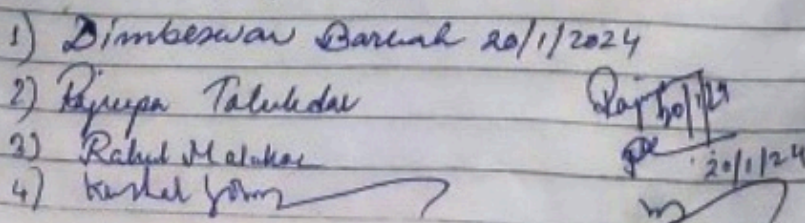 1) Dimbeswar Baruah 20/1/2024
2) Rajrupa Talukdar 20/1/24
3) Rahul Malakar 20/1/24
4) Kushal